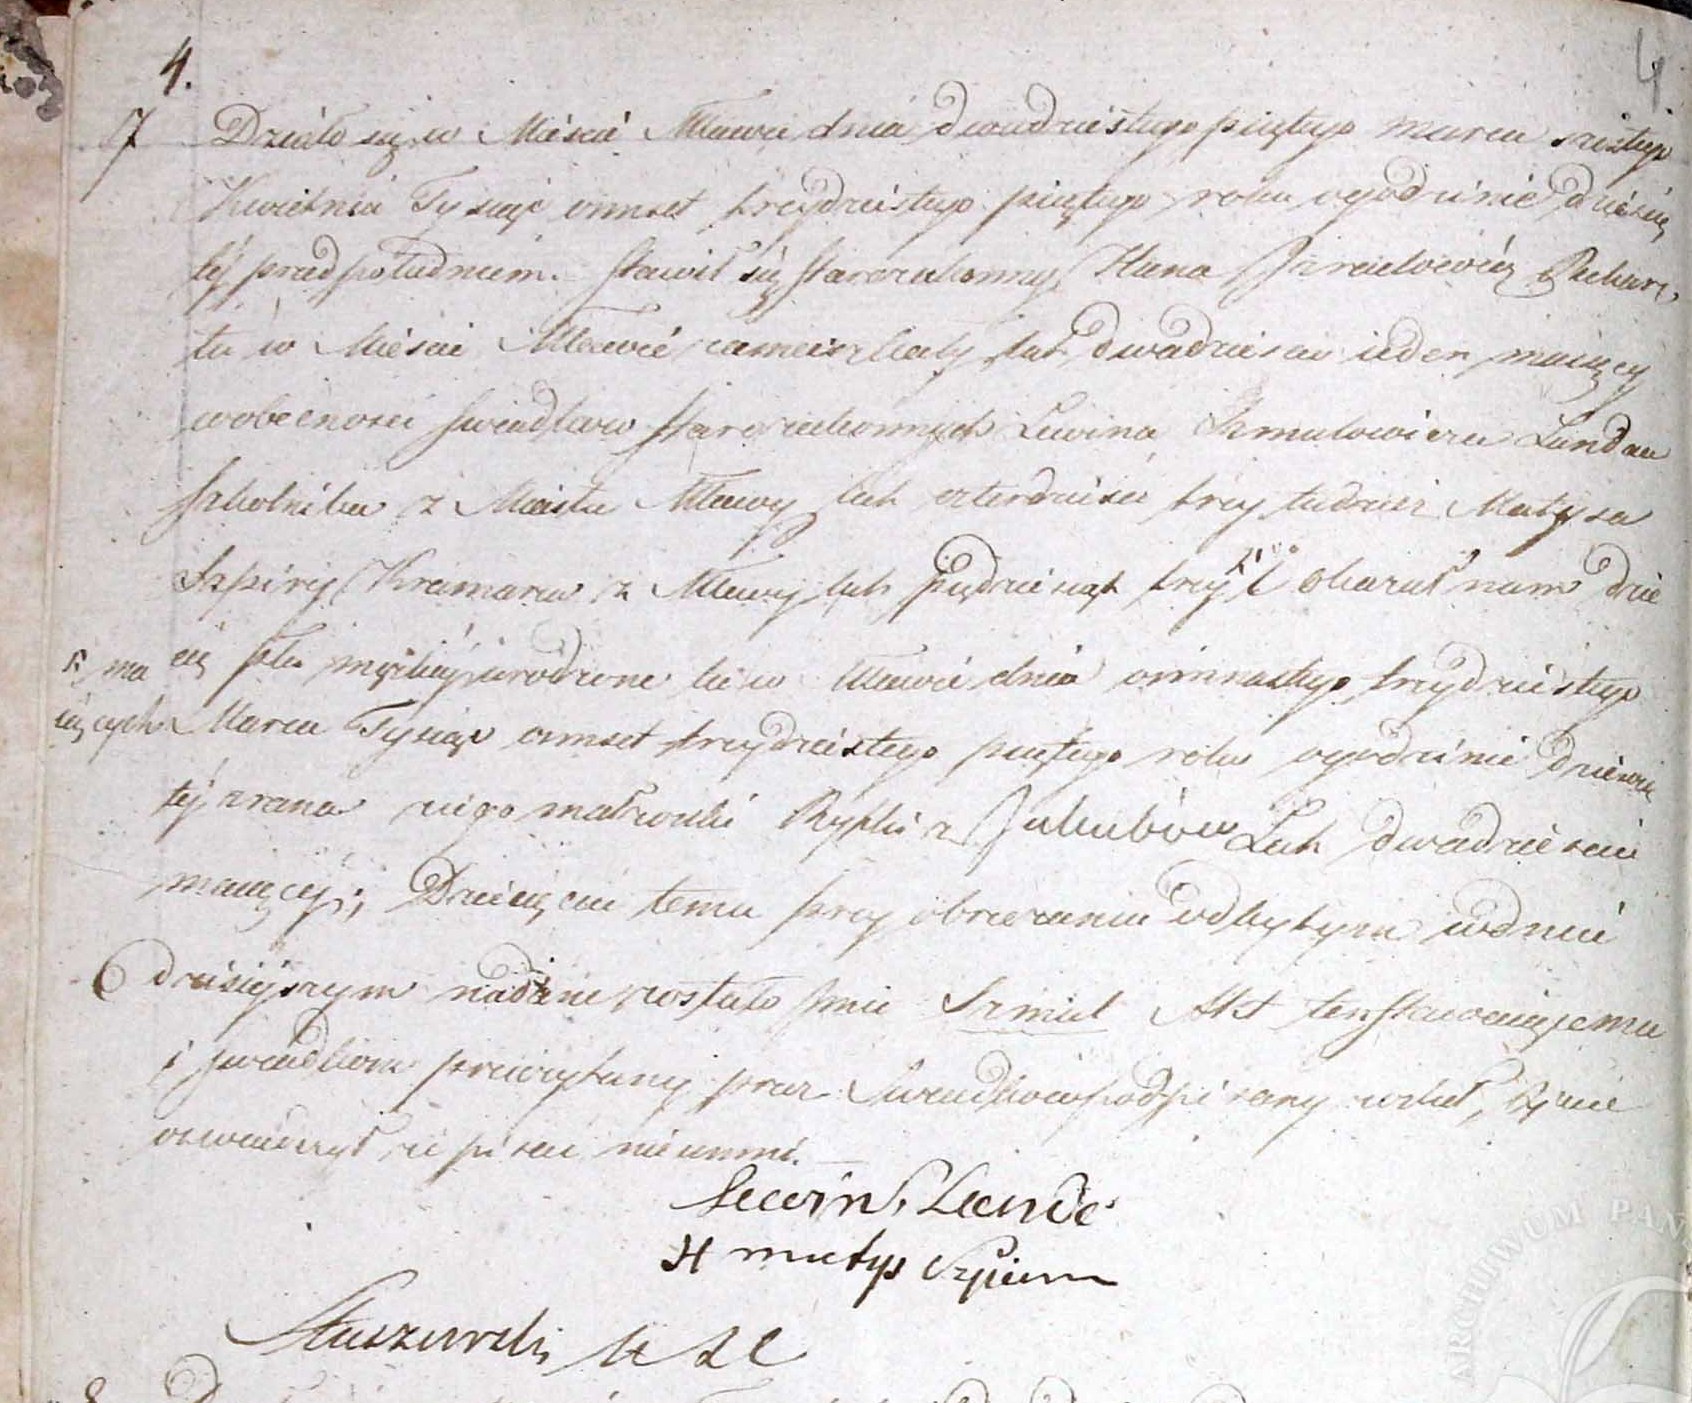 4.
4.
7 Działo się w Mieście Mławie dnia dwudziestego piątego marca szóstego
Kwietnia Tysiąc ośmset trzydziestego piątego roku o godzinie dziesią
téj przed południem. Stawił się Starozakonny Hana
tu w Mieście Mławie zamieszkały lat dwadzieścia ieden maiący
w obecności świadków Starozakonnych Lewina Szmulowicza Landau
Szkolnika z Miasta Mławy lat czterdzieści trzy tudzież Matysa
Szpiry Kramarza z Mławy lat pięćdziesiąt trzy i okazał nam dzie
cię płci męzkiéy urodzone tu w Mławie dnia osimnastego trzydziestego
maiących
Marca Tysiąc ośmset trzydziestego piątego roku o godzinie dziewią
téj zrana z iego małżonki Ryfki z Jakubów Lat dwadzieścia
maiącéj; Dziecięciu temu przy obrzezaniu odbytym w dniu
dzisiéjszym nadane zostało Imie Szmul Akt ten Stawaiącemu
i świadkom przeczytany przez Świadków podpisany został, Oyciec
oświadczył że pisać nie umie.
Lewin Lande
H matys Szpiera
Staszewski
ARCHIWUM PAŃ